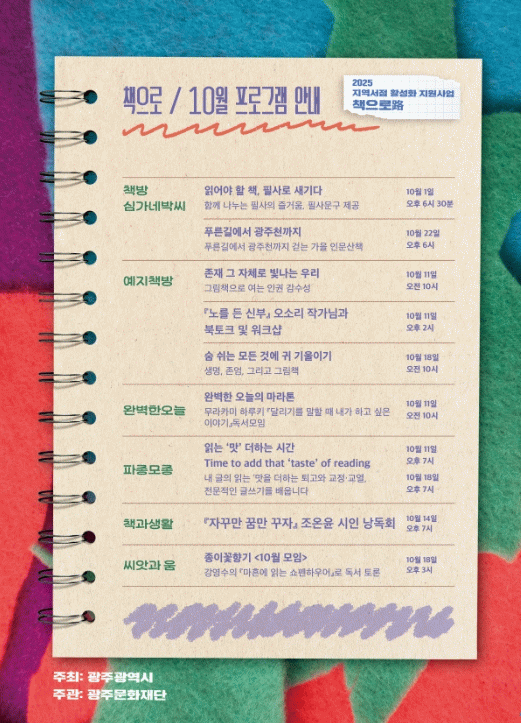 책으로 / 10월 프로그램 안내
2025
지역서점 활성화 지원사업
책으로路
책방
심가네박씨
읽어야 할 책, 필사로 새기다
함께 나누는 필사의 즐거움, 필사문구 제공
10월 1일
오후 6시 30분
푸른길에서 광주천까지
푸른길에서 광주천까지 걷는 가을 인문산책
10월 22일
오후 6시
예지책방
존재 그 자체로 빛나는 우리
그림책으로 여는 인권 감수성
10월 11일
오전 10시
『노를 든 신부』 오소리 작가님과
북토크 및 워크샵
10월 11일
오후 2시
숨 쉬는 모든 것에 귀 기울이기
생명, 존엄, 그리고 그림책
10월 18일
오전 10시
완벽한오늘
완벽한 오늘의 마라톤
무라카미 하루키 『달리기를 말할 때 내가 하고 싶은
이야기』독서모임
10월 11일
오전 10시
파종모종
읽는 '맛' 더하는 시간
Time to add that 'taste' of reading
내 글의 읽는 '맛'을 더하는 퇴고와 교정·교열,
전문적인 글쓰기를 배웁니다
10월 11일
오후 7시
10월 18일
오후 7시
책과생활
『자꾸만 꿈만 꾸자』 조온윤 시인 낭독회
10월 14일
오후 7시
씨앗과 움
종이꽃향기 <10월 모임>
강영수의 『마흔에 읽는 쇼펜하우어』로 독서 토론
10월 18일
오후 3시
주최: 광주광역시
주관: 광주문화재단